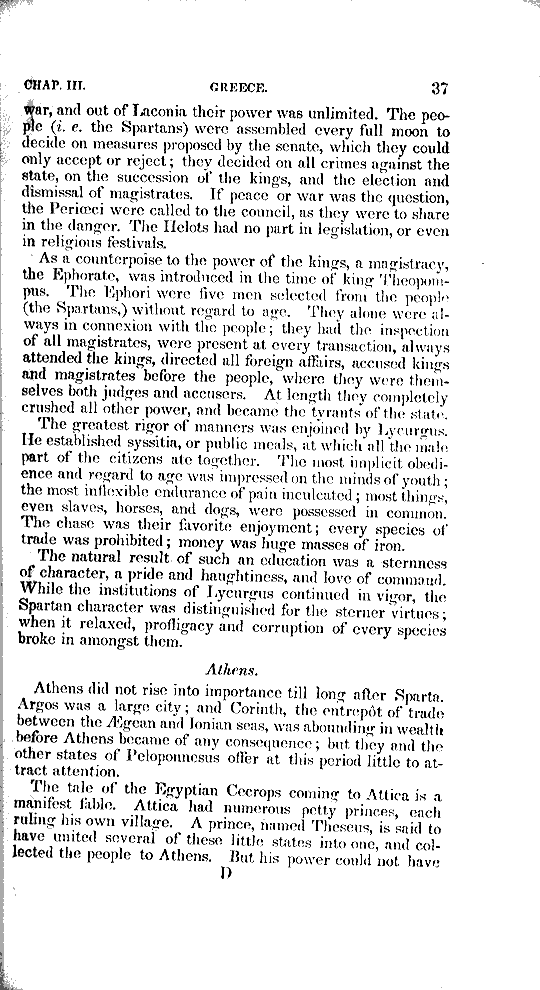 CHAP. III. GREECE. 37
war, and out of Laconia their power was unlimited. The peo-
ple (i. e. the Spartans) were assembled every full moon to
decide on measures proposed by the senate, which they could
only accept or reject; they decided on all crimes against the
state, on the succession of the kings, and the election and
dismissal of magistrates. If peace or war was the question,
the Periœci were called to the council, as they were to share
in the danger. The Helots had no part in legislation, or even
in religious festivals.
As a counterpoise to the power of the kings, a magistracy,
the Ephorate, was introduced in the time of king Theopom-
pus. The Ephori were five men selected from the people
(the Spartans,) without regard to age. They alone were al-
ways in connexion with the people; they had the inspection
of all magistrates, were present at every transaction, always
attended the kings, directed all foreign affairs, accused kings
and magistrates before the people, where they were them-
selves both judges and accusers. At length they completely
crushed all other power, and became the tyrants of the state.
The greatest rigor of manners was enjoined by Lycurgus.
He established syssitia, or public meals, at which all the male
part of the citizens ate together. The most implicit obedi-
ence and regard to age was impressed on the minds of youth;
the most inflexible endurance of pain inculcated; most things,
even slaves, horses, and dogs, were possessed in common.
The chase was their favorite enjoyment; every species of
trade was prohibited; money was huge masses of iron.
The natural result of such an education was a sternness
of character, a pride and haughtiness, and love of command.
While the institutions of Lycurgus continued in vigor, the
Spartan character was distinguished for the sterner virtues;
when it relaxed, profligacy and corruption of every species
broke in amongst them.
Athens.
Athens did not rise into importance till long after Sparta.
Argos was a large city; and Corinth, the entrepôt of trade
between the Ægean and Ionian seas, was abounding in wealth
before Athens became of any consequence; but they and the
other states of Peloponnesus offer at this period little to at-
tract attention.
The tale of the Egyptian Cecrops coming to Attica is a
manifest fable. Attica had numerous petty princes, each
ruling his own village. A prince, named Theseus, is said to
have united several of these little states into one, and col-
lected the people to Athens. But his power could not have
D